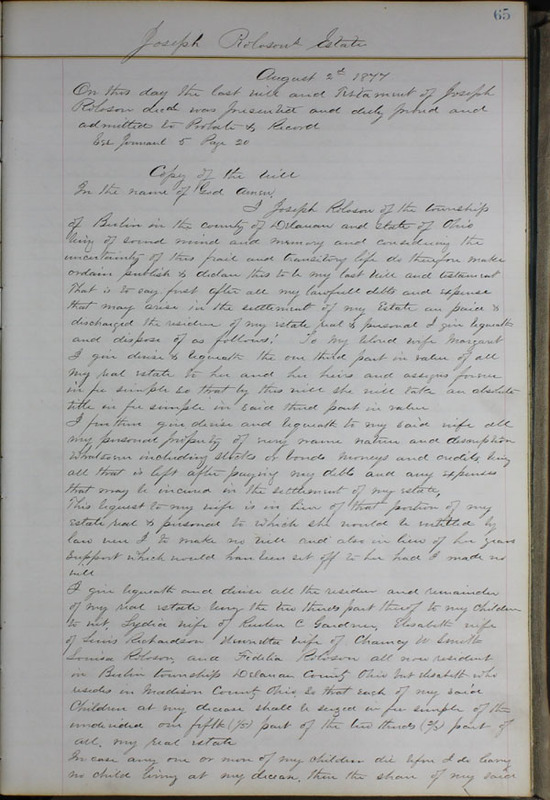 65
Joseph Roloson's Estate
August 2d 1877
On this day the last will and Testament of Joseph
Roloson decd was presented and duly proved and
admitted to Probate & Record
See Journal 5 Page 20
Copy of the will
In the name of God Amen,
I Joseph Roloson of the township
of Berlin in the county of Delaware and state of Ohio
being of sound mind and memory and considering the
uncertainty of this frail and transitory life do therefore make
ordain publish & declare this to be my last will and testament
That is to say first after all my lawfull debts and expense
that may arise in the settlement of my Estate are paid &
discharged the residue of my estate real & personal I give bequeath
and dispose of as follows: To my beloved wife Margaret
I give devise & bequeath the one third part in value of all
my real estate to her and her heirs and assigns forever
in fee simple so that by this will she will take an absolute
title in fee simple in said third part in value
I further give devise and bequeath to my said wife all
my personal property of every name nature and description
whatsoever including stocks or bonds moneys and credits being
all that is left after paying my debts and any expenses
that may be incured in the settlement of my estate,
This bequest to my wife is in lieu of that portion of my
estate real & personal to which she would be entitled by
law were I to make no will and also in lieu of her years
support which would have been set off to her had I made no
will
I give bequeath and devise all the residue and remainder
of my real estate being the two thirds part thereof to my children
to wit, Lydia wife of Reuben C Gardner, Elisabeth wife
of Lewis Richardson Henrietta wife of Chancy W Smith
Louisa Roloson, and Fidelia Roloson all now resident
in Berlin township Delaware County Ohio but Elisabeth who
resides in Madison County Ohio, so that each of my said
Children at my decease shall be seized in fee simple of the
undivided one fifth (1/5) part of the two thirds (2/3) part of
all, my real estate
In case any one or more of my children die before I do leaving
no child living at my decease, then the share of my said